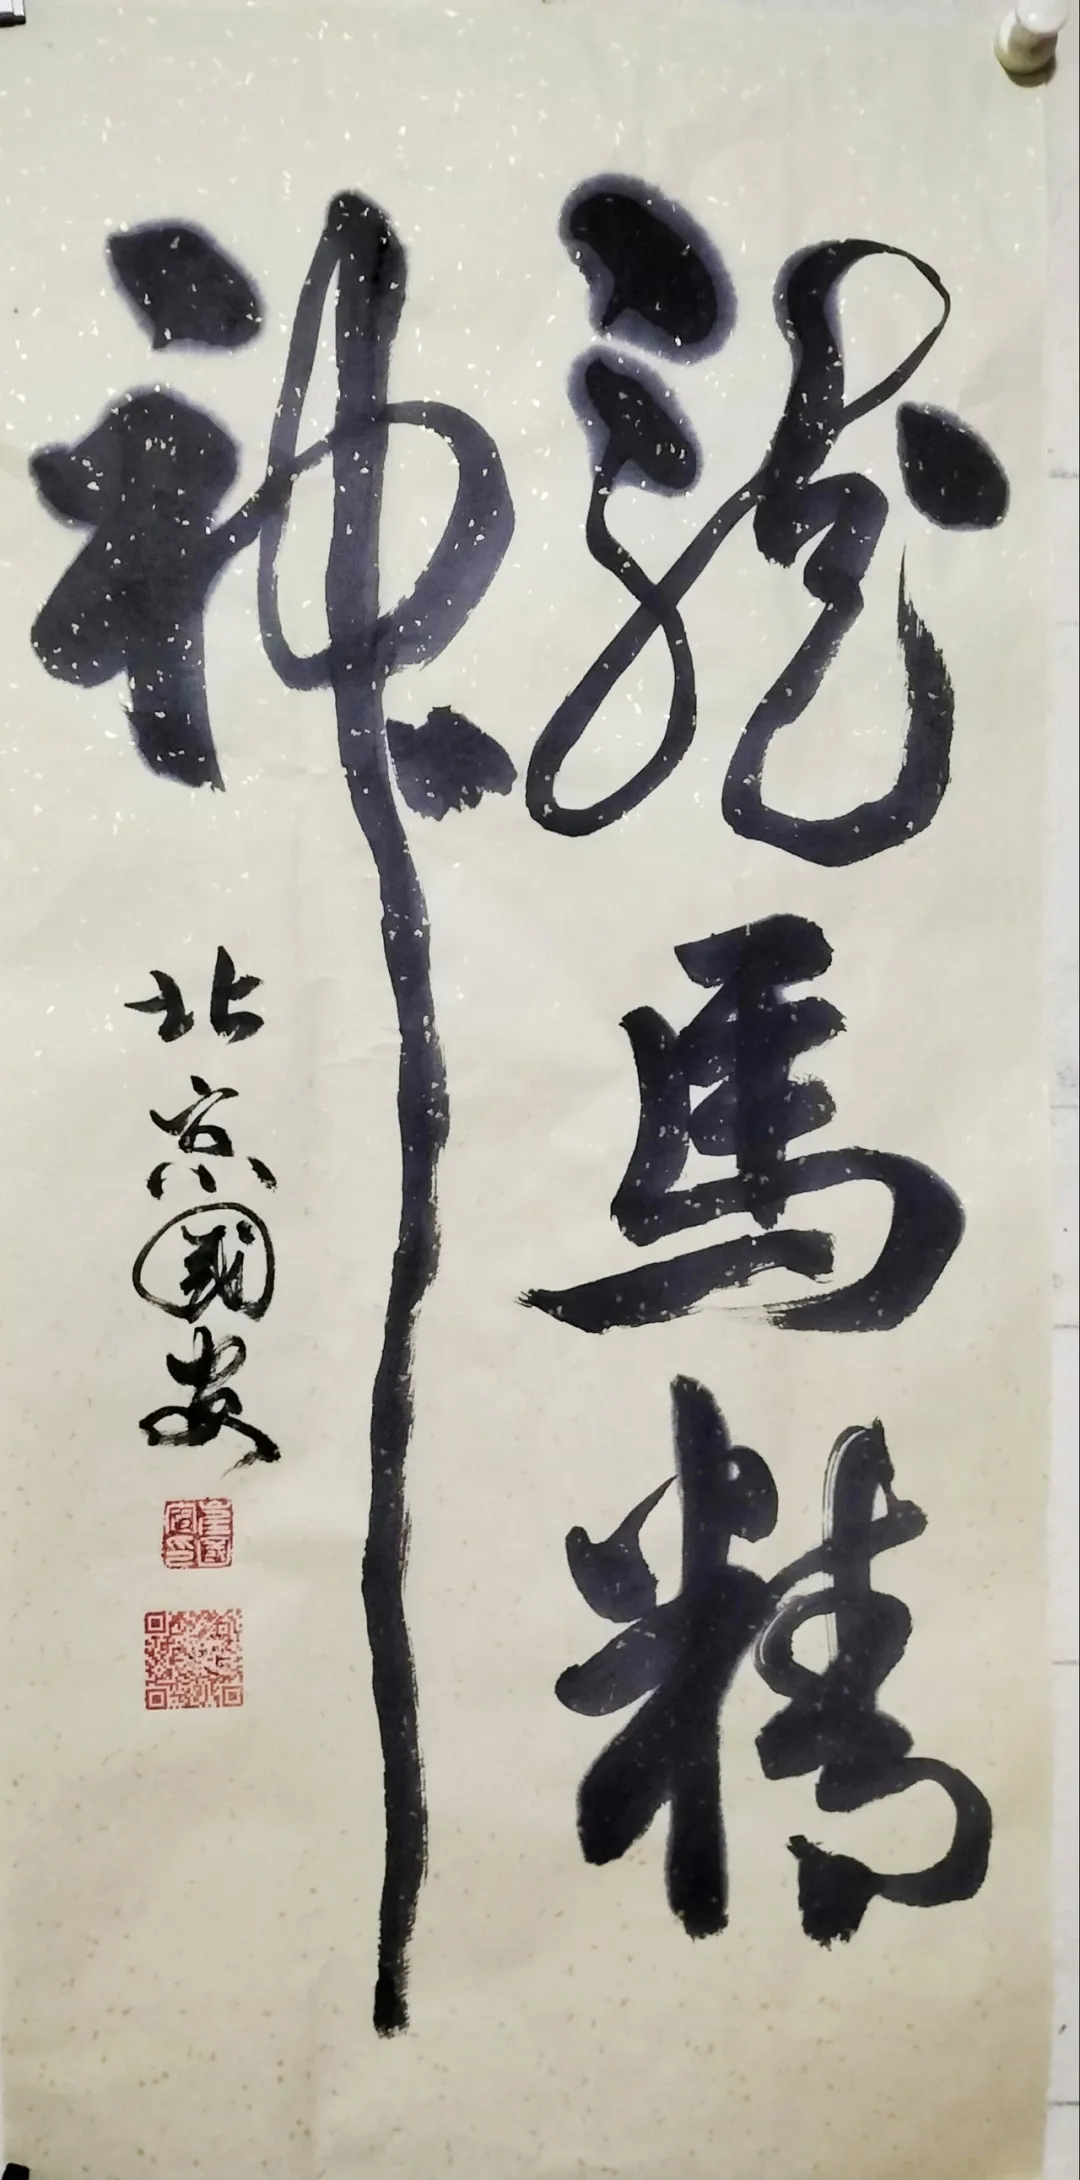 龍馬精
神
北京國安